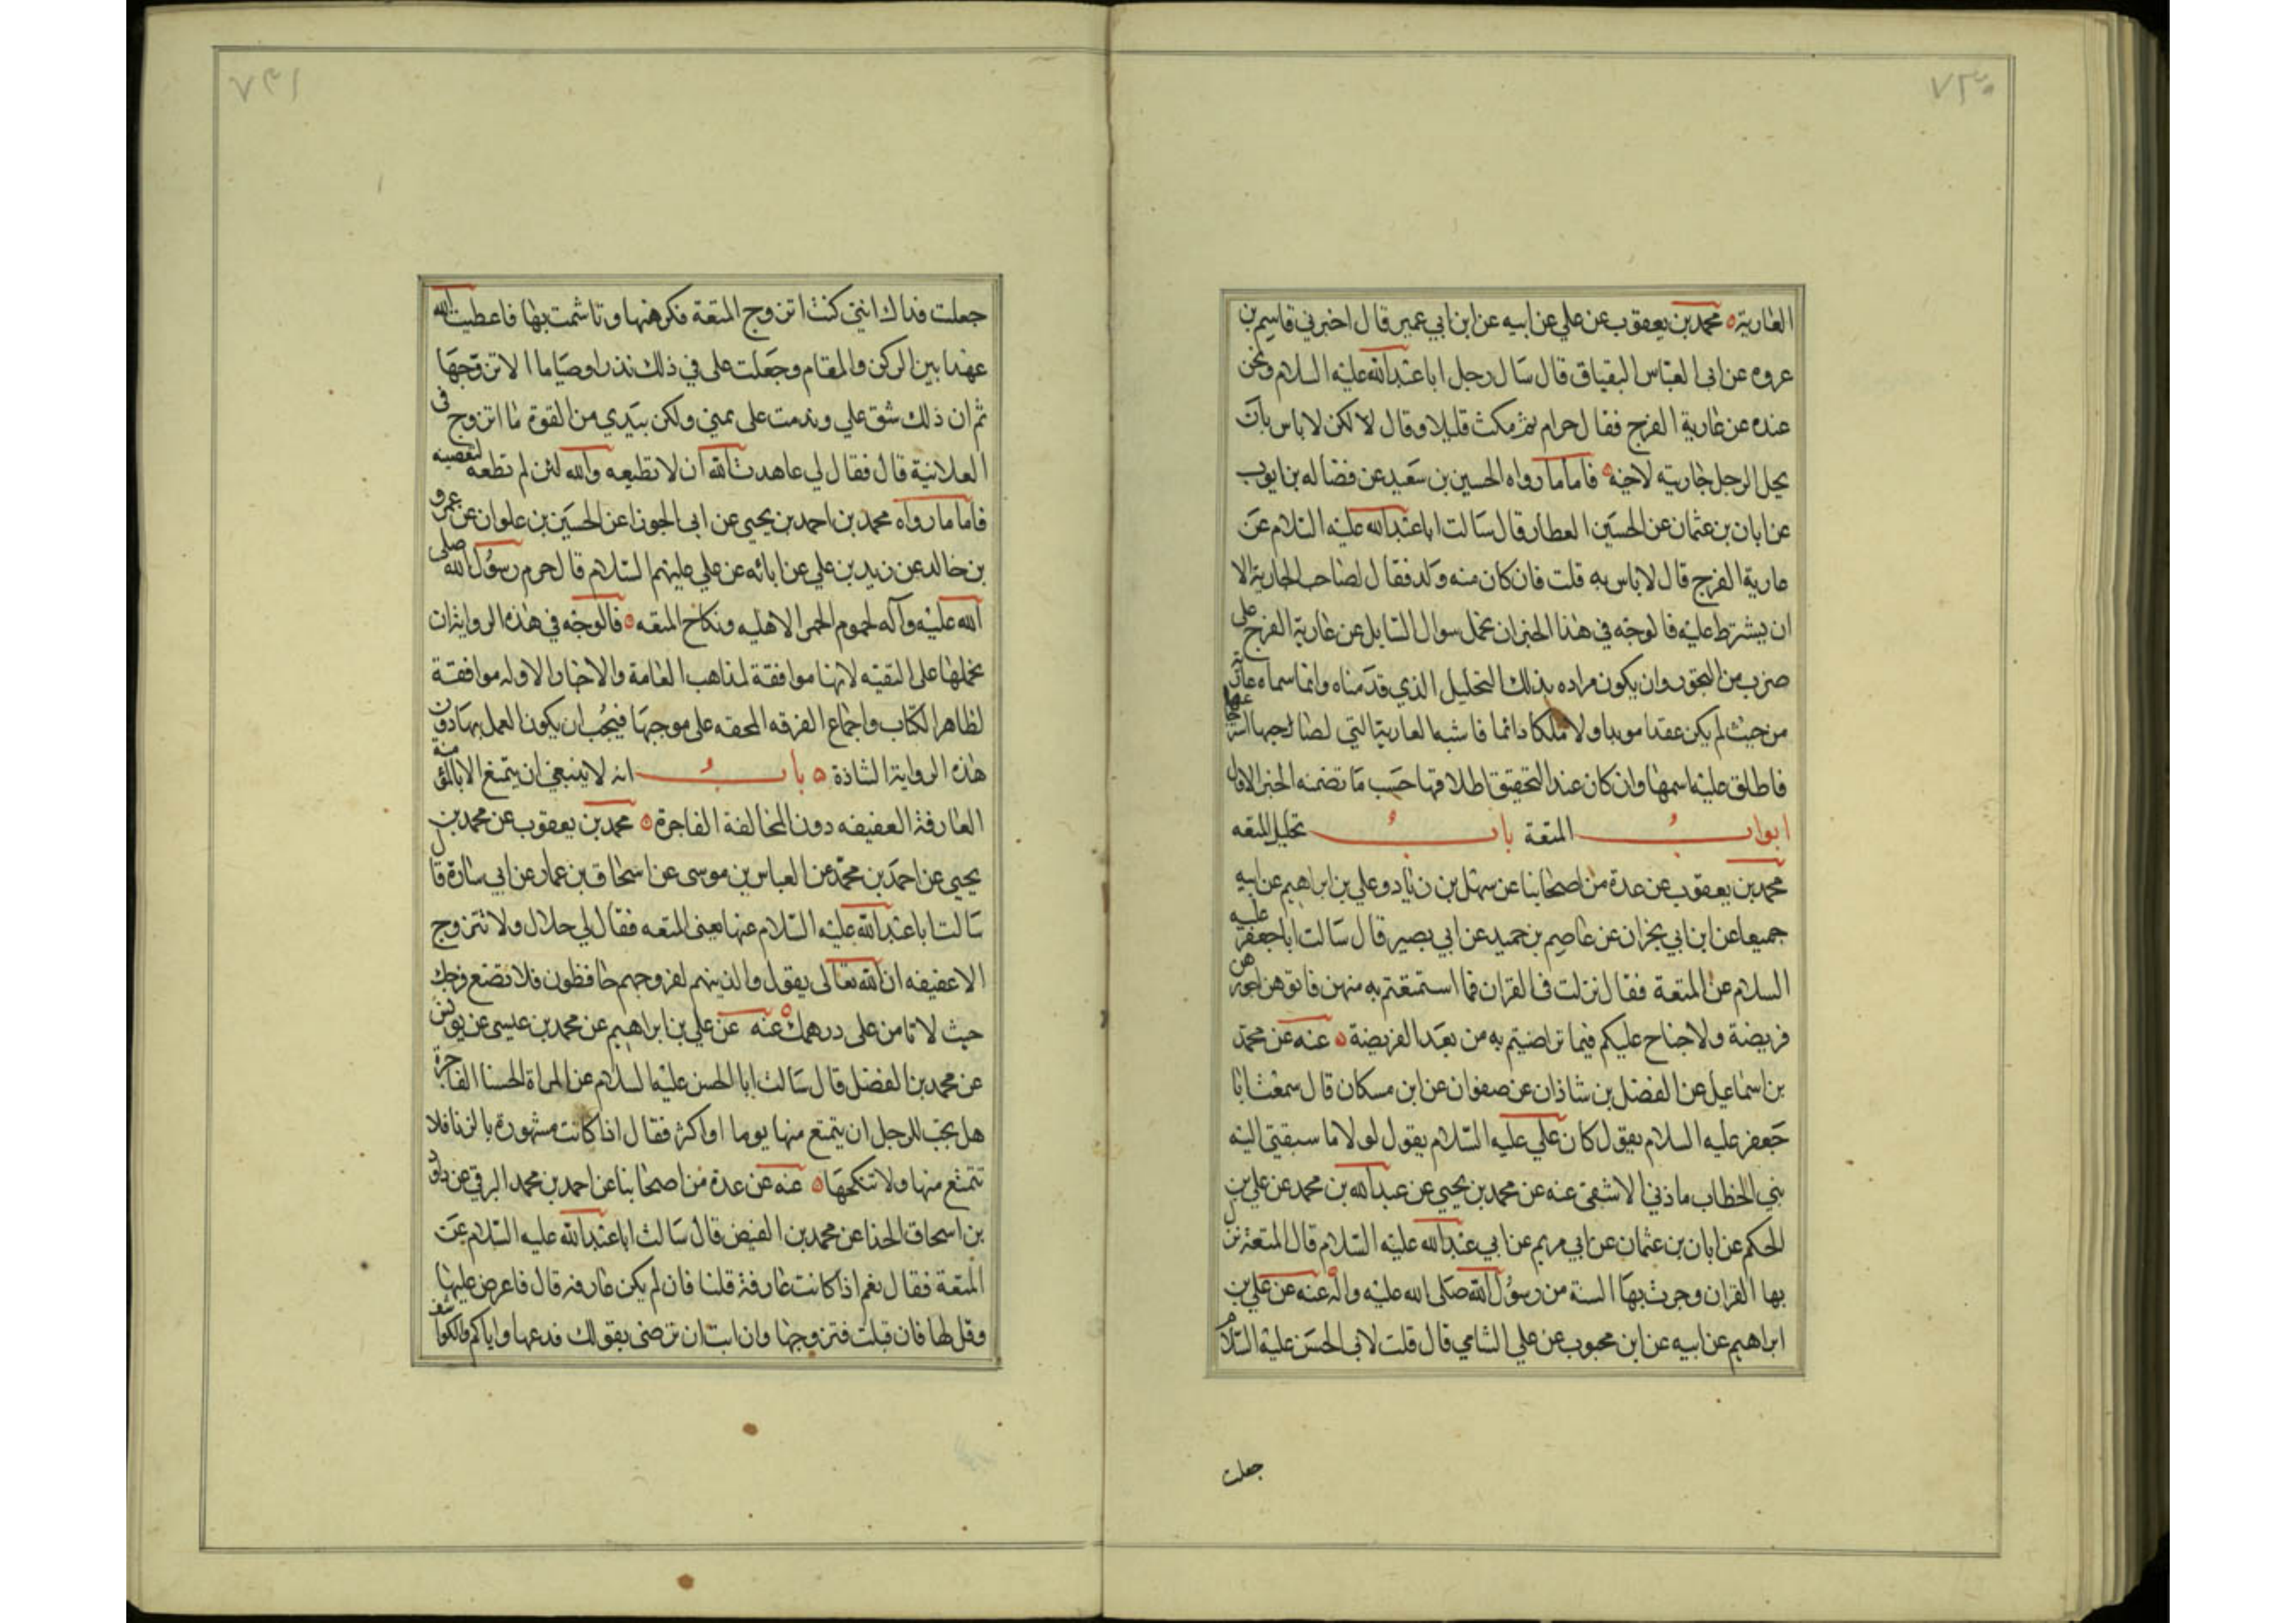 ٧٣٠
العارية محمد بن يعقوب عن علي عن ابيه عن ابن ابي عمير قال اخبرني قاسم بن
عروه عن ابي العباس البقباق قال سال رجل ابا عبد الله عليه السلام ونحن
عنده عن عارية الفرج فقال حرام ثم مكث قليلا وقال لا لكن لا باس بان
يحل الرجل جاريته لاخيه فاما ما رواه الحسين بن سعيد عن فضاله بن ايوب
عن ابان بن عثمان عن الحسين العطار قال سالت ابا عبد الله عليه السلام عن
عارية الفرج قال لا باس به قلت فان كان منه ولد فقال لصاحب الجارية الا
ان يشترط عليه فالوجه في هذا الخبر ان نحمل سوال السايل عن عارية الفرج على
ضرب من التجوز وان يكون مراده بذلك التحليل الذي قدمناه وانما سماه عارية
من حيث لم يكن عقدا موبدا ولا ملكا دائما فاشبه العارية التي لصاحبها استرجاعها
فاطلق عليه اسمها وان كان عند التحقيق اطلاقها حسب ما تضمنه الخبر الاول
ابواب المتعة باب تحليل المتعه
محمد بن يعقوب عن عدة من اصحابنا عن سهل بن زياد وعلي بن ابراهيم عن ابيه
جميعا عن ابن ابي نجران عن عاصم بن حميد عن ابي بصير قال سالت ابا جعفر عليه
السلام عن المتعة فقال نزلت في القران فما استمتعتم به منهن فاتوهن اجورهن
فريضة ولا جناح عليكم فيما تراضيتم به من بعد الفريضة عنه عن محمد
بن اسماعيل عن الفضل بن شاذان عن صفوان عن ابن مسكان قال سمعت ابا
جعفر عليه السلام يقول كان علي عليه السلام يقول لولا ما سبقني اليه
بني الخطاب ما زني الا شقى عنه عن محمد بن يحيى عن عبد الله بن محمد عن علي بن
الحكم عن ابان بن عثمان عن ابي مريم عن ابي عبد الله عليه السلام قال المتعة نزل
بها القران وجرت بها السنة من رسول الله صلى الله عليه واله عنه عن علي بن
ابراهيم عن ابيه عن ابن محبوب عن علي الشامي قال قلت لابي الحسن عليه السلام
جعلت
٧٣١
جعلت فداك انني كنت اتزوج المتعة فكرهتها وتاشمت بها فاعطيت الله
عهدا بين الركن والمقام وجعلت على في ذلك نذرا وصياما الا تزوجها
ثم ان ذلك شق علي وندمت على يميني ولكن بيدي من القوة ما اتزوج في
العلانية قال فقال لي عاهدت الله ان لا تطيعه والله لئن لم تطعه لتعصينه
فاما ما رواه محمد بن احمد بن يحيى عن ابي الجوزا عن الحسين بن علوان عن عمرو
بن خالد عن زيد بن علي عن ابائه عن علي عليهم السلام قال حرم رسول الله صلى
الله عليه وآله لحوم الحمر الاهليه ونكاح المتعه فالوجه في هذه الرواية ان
نحملها على التقيه لانها موافقة لمذاهب العامة والاخبار الاوله موافقة
لظاهر الكتاب واجماع الفرقه المحقه على موجبها فيجب ان يكون العمل بها دون
هذه الرواية الشاذة باب انه لا ينبغي ان يتمتع الا بالمؤمنة
العارفة العفيفه دون المخالفة الفاجرة محمد بن يعقوب عن محمد بن
يحيى عن احمد بن محمد عن العباس بن موسى عن اسحاق بن عمار عن ابي سارة قال
سالت ابا عبد الله عليه السلام عنها يعني المتعه فقال لي حلال ولا تتزوج
الا عفيفه ان الله تعالى يقول والذينهم لفروجهم حافظون فلا تضع فرجك
حيث لا تامن على درهمك عنه عن علي بن ابراهيم عن محمد بن عيسى عن يونس
عن محمد بن الفضل قال سالت ابا الحسن عليه السلام عن المراة الحسنا الفاجرة
هل يجب للرجل ان يتمتع منها يوما او اكثر فقال اذا كانت مشهورة بالزنا فلا
تتمتع منها ولا تنكحها عنه عن عدة من اصحابنا عن احمد بن محمد البرقي عن داود
بن اسحاق الحذا عن محمد بن الفيض قال سالت ابا عبد الله عليه السلام عن
المتعة فقال نعم اذا كانت عارفة قلنا فان لم يكن عارفه قال فاعرض عليها
وقل لها فان قبلت فتزوجها وان ابت ان ترضى بقولك فدعها واياكم والكواشف